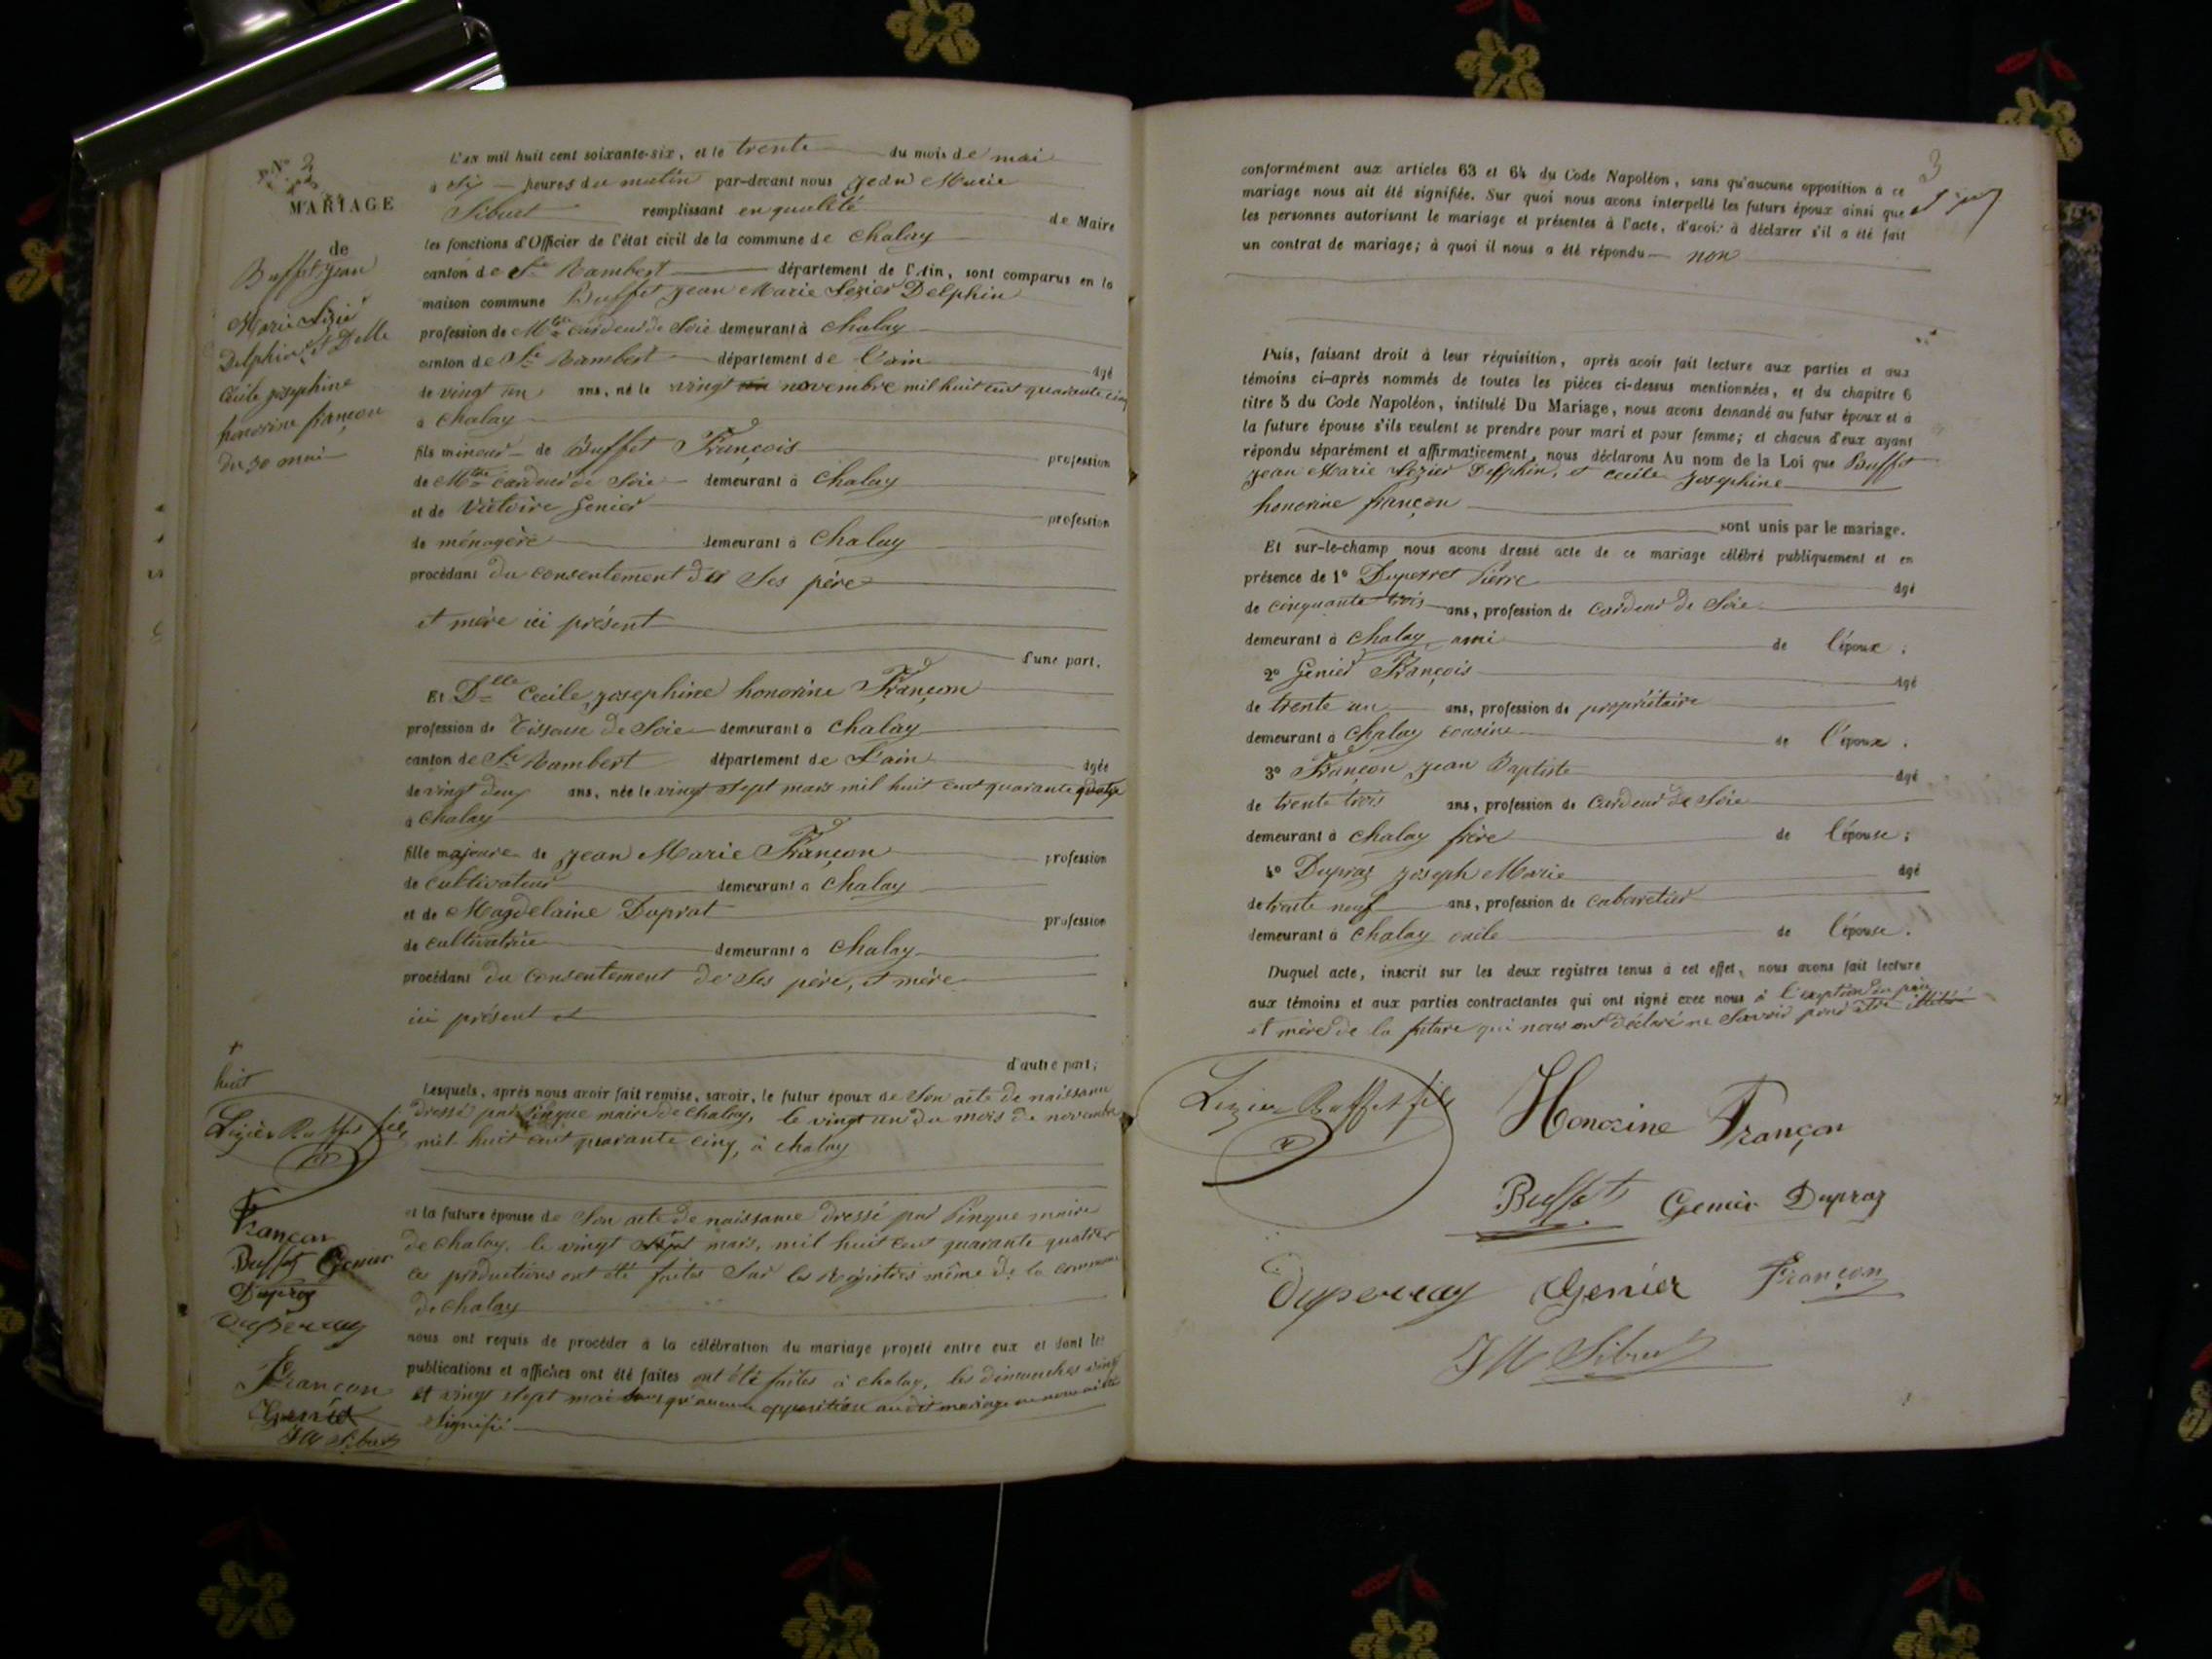 N° 2
MARIAGE
de
Buffet Jean
Marie Lizier
Delphin et Delle
Cécile josephine
honorine françon
du 30 mai
L'an mil huit cent soixante-six, et le trente du mois de mai
à six heures du matin par-devant nous Jean Marie
Sibuet remplissant en qualité de Maire
les fonctions d'Officier de l'état civil de la commune de Chaley
canton de St Rambert département de l'Ain, sont comparus en la
maison commune Buffet Jean Marie Lezier Delphin
profession de Mtre cardeur de Soie demeurant à Chaley
canton de St Rambert département de l'ain âgé
de vingt un ans, né le vingt un novembre mil huit cent quarante cinq
à Chaley
fils mineur de Buffet François profession
de Mtre cardeur de Soie demeurant à Chaley
et de Victoire Genier profession
de ménagère demeurant à Chaley
procédant du consentement de ses père
et mère ici présent
d'une part.
Et Delle Cecile josephine honorine Françon
profession de Tisseuse de Soie demeurant à Chaley
canton de St Rambert département de L'ain âgée
de vingt deux ans, née le vingt sept mars mil huit cent quarante quatre
à Chaley
fille majeure de jean Marie Françon profession
de cultivateur demeurant à Chaley
et de Magdelaine Duprat profession
de cultivatrice demeurant à Chaley
procédant du consentement de ses père, et mère
ici présent et
d'autre part;
Lesquels, après nous avoir fait remise, savoir, le futur époux de son acte de naissance
dressé par Pingue maire de Chaley, le vingt un du mois de novembre
mil huit cent quarante cinq, à chaley
et la future épouse de son acte de naissance dressé par Pingue maire
de Chaley, le vingt sept mars, mil huit cent quarante quatre
ces productions ont été faites sur les Registres même de la commune
de Chaley
nous ont requis de procéder à la célébration du mariage projeté entre eux et dont les
publications et affiches ont été faites ont été faites à chaley, les dimanches vingt
et vingt sept mai sans qu'aucune opposition audit mariage ne nous ait été
signifié
+
huit
Lizier Buffet fils
Françon
Buffet Genier
Dupraz
Duperray
Françon
Genier
JM Sibuet
3
conformément aux articles 63 et 64 du Code Napoléon, sans qu'aucune opposition à ce
mariage nous ait été signifiée. Sur quoi nous avons interpellé les futurs époux ainsi que
les personnes autorisant le mariage et présentes à l'acte, d'avoir à déclarer s'il a été fait
un contrat de mariage; à quoi il nous a été répondu non
Puis, faisant droit à leur réquisition, après avoir fait lecture aux parties et aux
témoins ci-après nommés de toutes les pièces ci-dessus mentionnées, et du chapitre 6
titre 5 du Code Napoléon, intitulé Du Mariage, nous avons demandé au futur époux et à
la future épouse s'ils veulent se prendre pour mari et pour femme; et chacun d'eux ayant
répondu séparément et affirmativement, nous déclarons Au nom de la Loi que Buffet
jean Marie Lezier Delphin, et cecile Josephine
honorine françon
sont unis par le mariage.
Et sur-le-champ nous avons dressé acte de ce mariage célébré publiquement et en
présence de 1° Duperret Pierre âgé
de cinquante trois ans, profession de cardeur de Soie
demeurant à Chaley ami de l'époux;
2° Genier François âgé
de trente un ans, profession de propriétaire
demeurant à Chaley cousin de l'époux.
3° Françon jean Baptiste âgé
de trente trois ans, profession de Cardeur de Soie
demeurant à Chaley frère de l'épouse;
4° Dupraz joseph Marie âgé
de trente neuf ans, profession de cabaretier
demeurant à Chaley de l'épouse.
Duquel acte, inscrit sur les deux registres tenus à cet effet, nous avons fait lecture
aux témoins et aux parties contractantes qui ont signé avec nous à l'exception du père
et mère de la future qui nous ont déclaré ne savoir pour être illitéré
Lizier Buffet fils
Honorine Françon
Buffet Genier Dupraz
Duperray Genier Françon
JM Sibuet